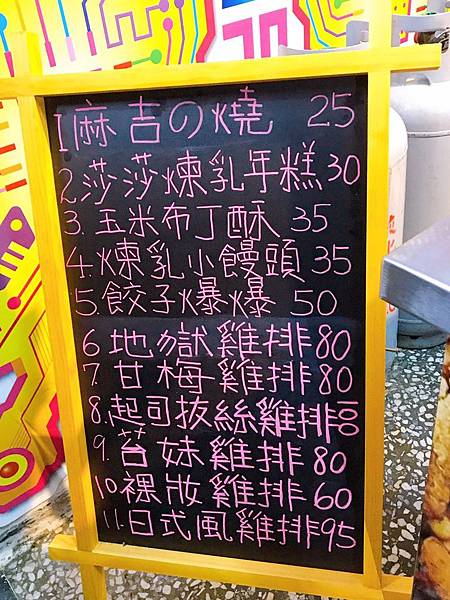 1麻吉の燒 25
2.莎莎煉乳年糕30
3.玉米布丁酥 35
4.煉乳小饅頭 35
5.餃子爆爆 50
6地獄雞排80
7.甘梅雞排80
8.起司拔絲雞排100
9.苔妹雞排 80
10.裸妝雞排60
11.日式風雞排95